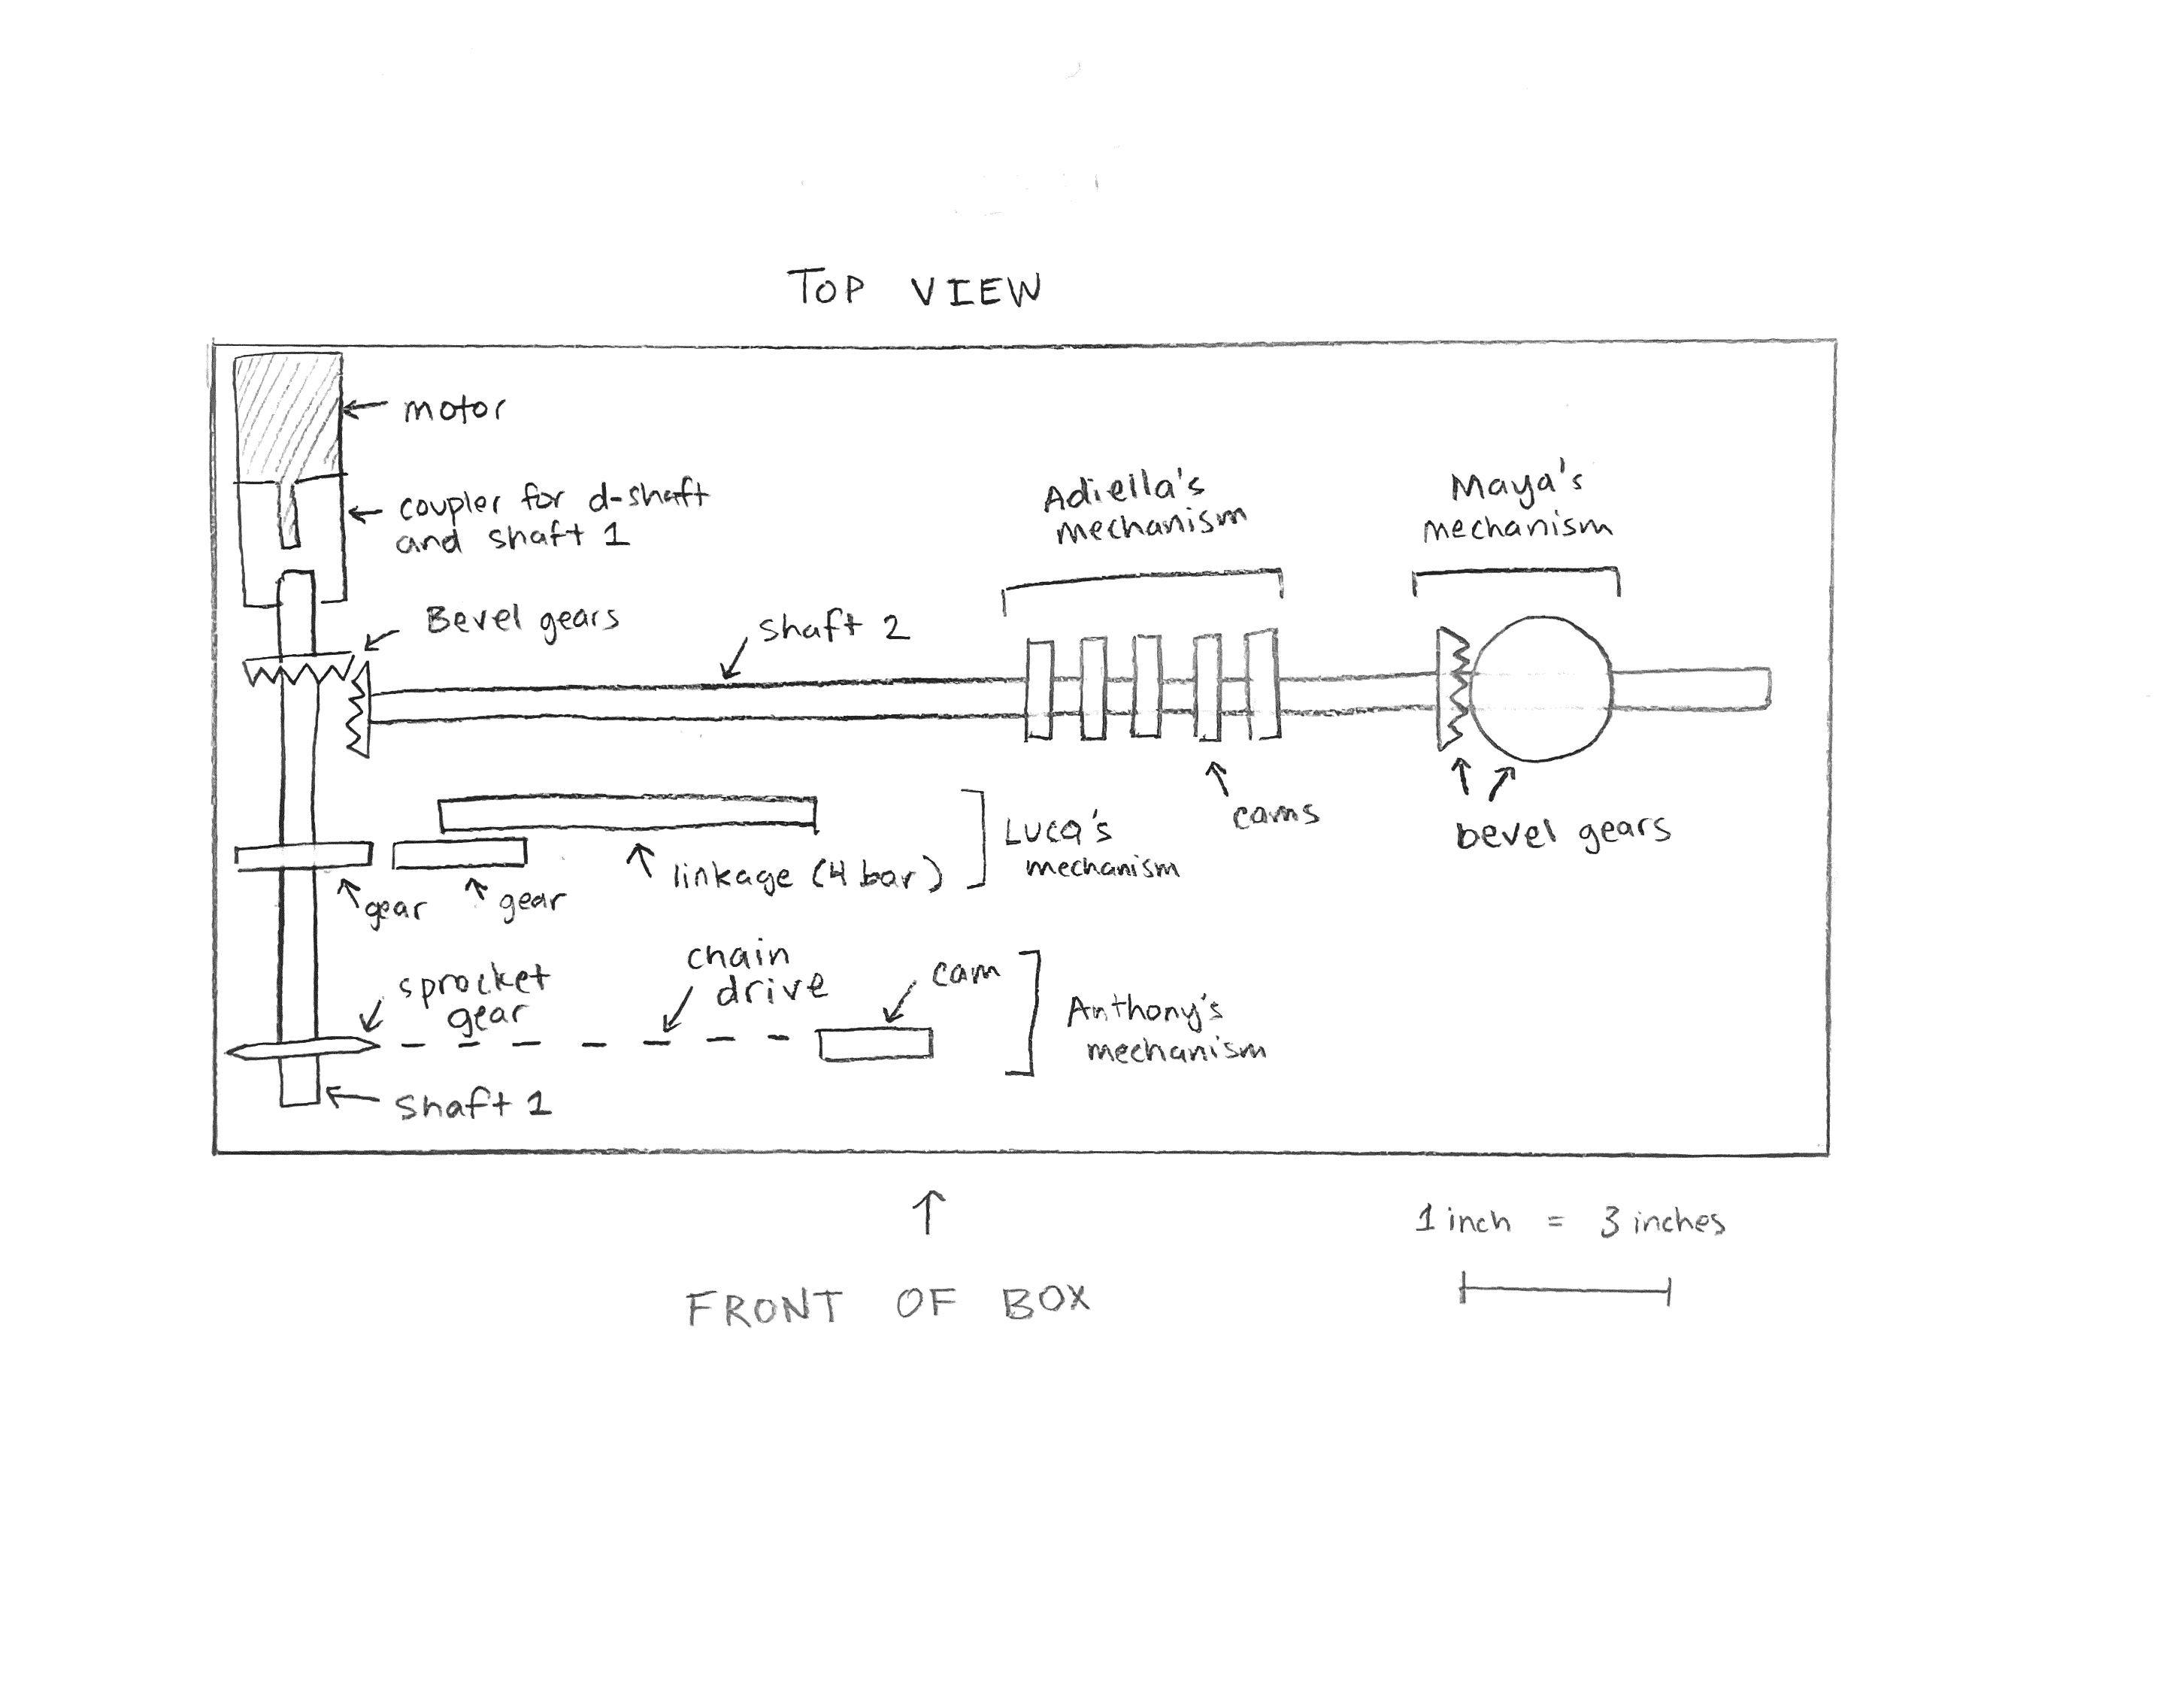 TOP VIEW
motor
coupler for d-shaft
and shaft 1
Bevel gears
shaft 2
Adiella's
mechanism
Maya's
mechanism
cams
bevel gears
Luca's
mechanism
linkage (4 bar)
gear
gear
sprocket
gear
chain
drive
cam
Anthony's
mechanism
shaft 1
1 inch = 3 inches
FRONT OF BOX